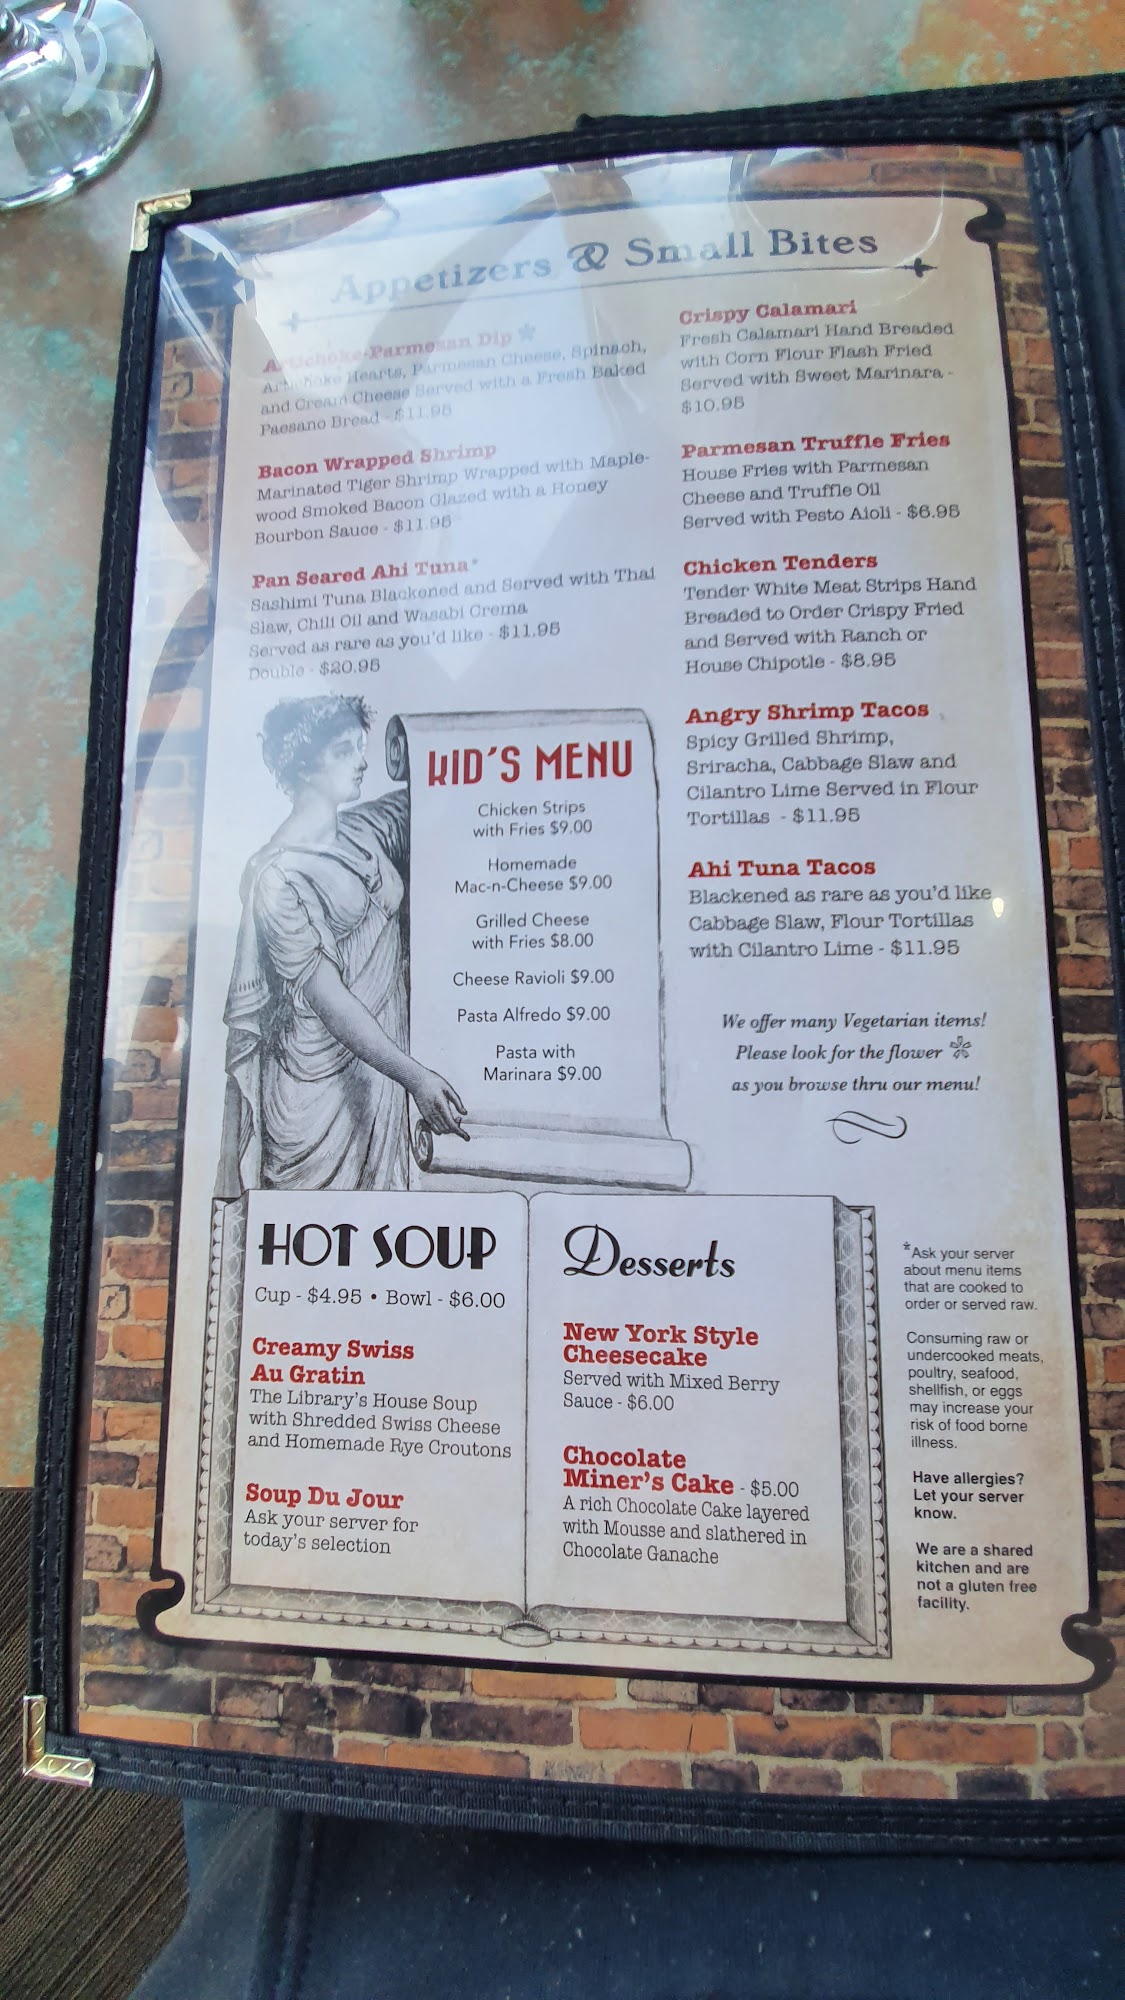 Appetizers & Small Bites
Artichoke-Parmesan Dip
Artichoke Hearts, Parmesan Cheese, Spinach,
and Cream Cheese Served with a Fresh Baked
Paesano Bread - $11.95
Bacon Wrapped Shrimp
Marinated Tiger Shrimp Wrapped with Maple-
wood Smoked Bacon Glazed with a Honey
Bourbon Sauce - $11.95
Pan Seared Ahi Tuna*
Sashimi Tuna Blackened and Served with Thai
Slaw, Chili Oil and Wasabi Crema
Served as rare as you'd like - $11.95
Double - $20.95
Crispy Calamari
Fresh Calamari Hand Breaded
with Corn Flour Flash Fried
Served with Sweet Marinara -
$10.95
Parmesan Truffle Fries
House Fries with Parmesan
Cheese and Truffle Oil
Served with Pesto Aioli - $6.95
Chicken Tenders
Tender White Meat Strips Hand
Breaded to Order Crispy Fried
and Served with Ranch or
House Chipotle - $8.95
Angry Shrimp Tacos
Spicy Grilled Shrimp,
Sriracha, Cabbage Slaw and
Cilantro Lime Served in Flour
Tortillas - $11.95
Ahi Tuna Tacos
Blackened as rare as you'd like
Cabbage Slaw, Flour Tortillas
with Cilantro Lime - $11.95
We offer many Vegetarian items!
Please look for the flower
as you browse thru our menu!
KID'S MENU
Chicken Strips
with Fries $9.00
Homemade
Mac-n-Cheese $9.00
Grilled Cheese
with Fries $8.00
Cheese Ravioli $9.00
Pasta Alfredo $9.00
Pasta with
Marinara $9.00
HOT SOUP
Cup - $4.95 • Bowl - $6.00
Creamy Swiss
Au Gratin
The Library's House Soup
with Shredded Swiss Cheese
and Homemade Rye Croutons
Soup Du Jour
Ask your server for
today's selection
Desserts
New York Style
Cheesecake
Served with Mixed Berry
Sauce - $6.00
Chocolate
Miner's Cake - $5.00
A rich Chocolate Cake layered
with Mousse and slathered in
Chocolate Ganache
*Ask your server
about menu items
that are cooked to
order or served raw.
Consuming raw or
undercooked meats,
poultry, seafood,
shellfish, or eggs
may increase your
risk of food borne
illness.
Have allergies?
Let your server
know.
We are a shared
kitchen and are
not a gluten free
facility.